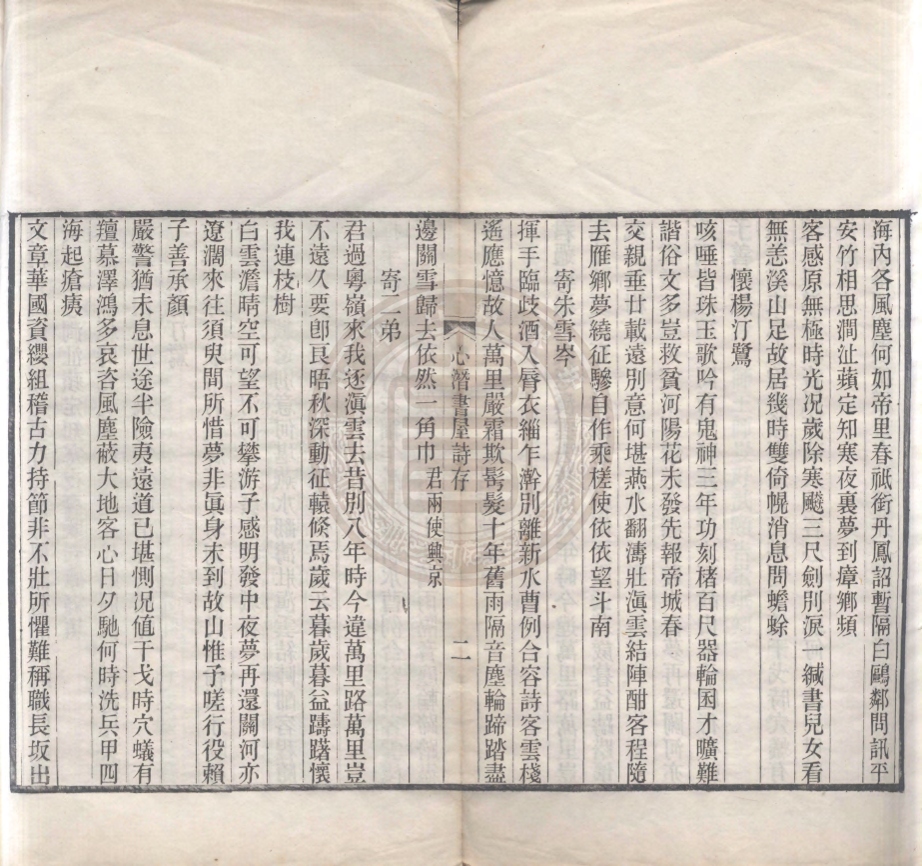 海內各風塵何如帝里春祇銜丹鳳詔暫隔白鷗鄰問訊平
安竹相思澗沚蘋定知寒夜裏夢到瘴鄉頻
客感原無極時光况歲除寒颷三尺劍別淚一緘書兒女看
無恙溪山足故居幾時雙倚幌消息問蟾蜍
懷楊汀鷺
咳唾皆珠玉歌吟有鬼神三年功刻楮百尺器輪囷才曠難
諧俗文多豈救貧河陽花未發先報帝城春
交親垂廿載遠別意何堪燕水翻濤壯滇雲結陣酣客程隨
去雁鄉夢繞征驂自作乘槎使依依望斗南
寄朱雪岑
揮手臨歧酒入脣衣緇乍澣別離新水曹例合容詩客雲棧
遙應憶故人萬里嚴霜欺鬢髮十年舊雨隔音塵輪蹄踏盡
邊關雪歸去依然一角巾 君兩使興京
心潛書屋詩存
二
寄二弟
君過粵嶺來我逐滇雲去昔別八年時今違萬里路萬里豈
不遠久要卽艮晤秋深動征轅倏焉歲云暮歲暮益躊躇懷
我連枝樹
白雲澹晴空可望不可攀游子感明發中夜夢再還關河亦
遼濶來往須臾間所惜夢非眞身未到故山惟子嗟行役賴
子善承顏
嚴警猶未息世途半險夷遠道已堪惻况值干戈時穴蟻有
羶慕澤鴻多哀咨風塵蔽大地客心日夕馳何時洗兵甲四
海起瘡痍
文章華國資纓組稽古力持節非不壯所懼難稱職長坂出